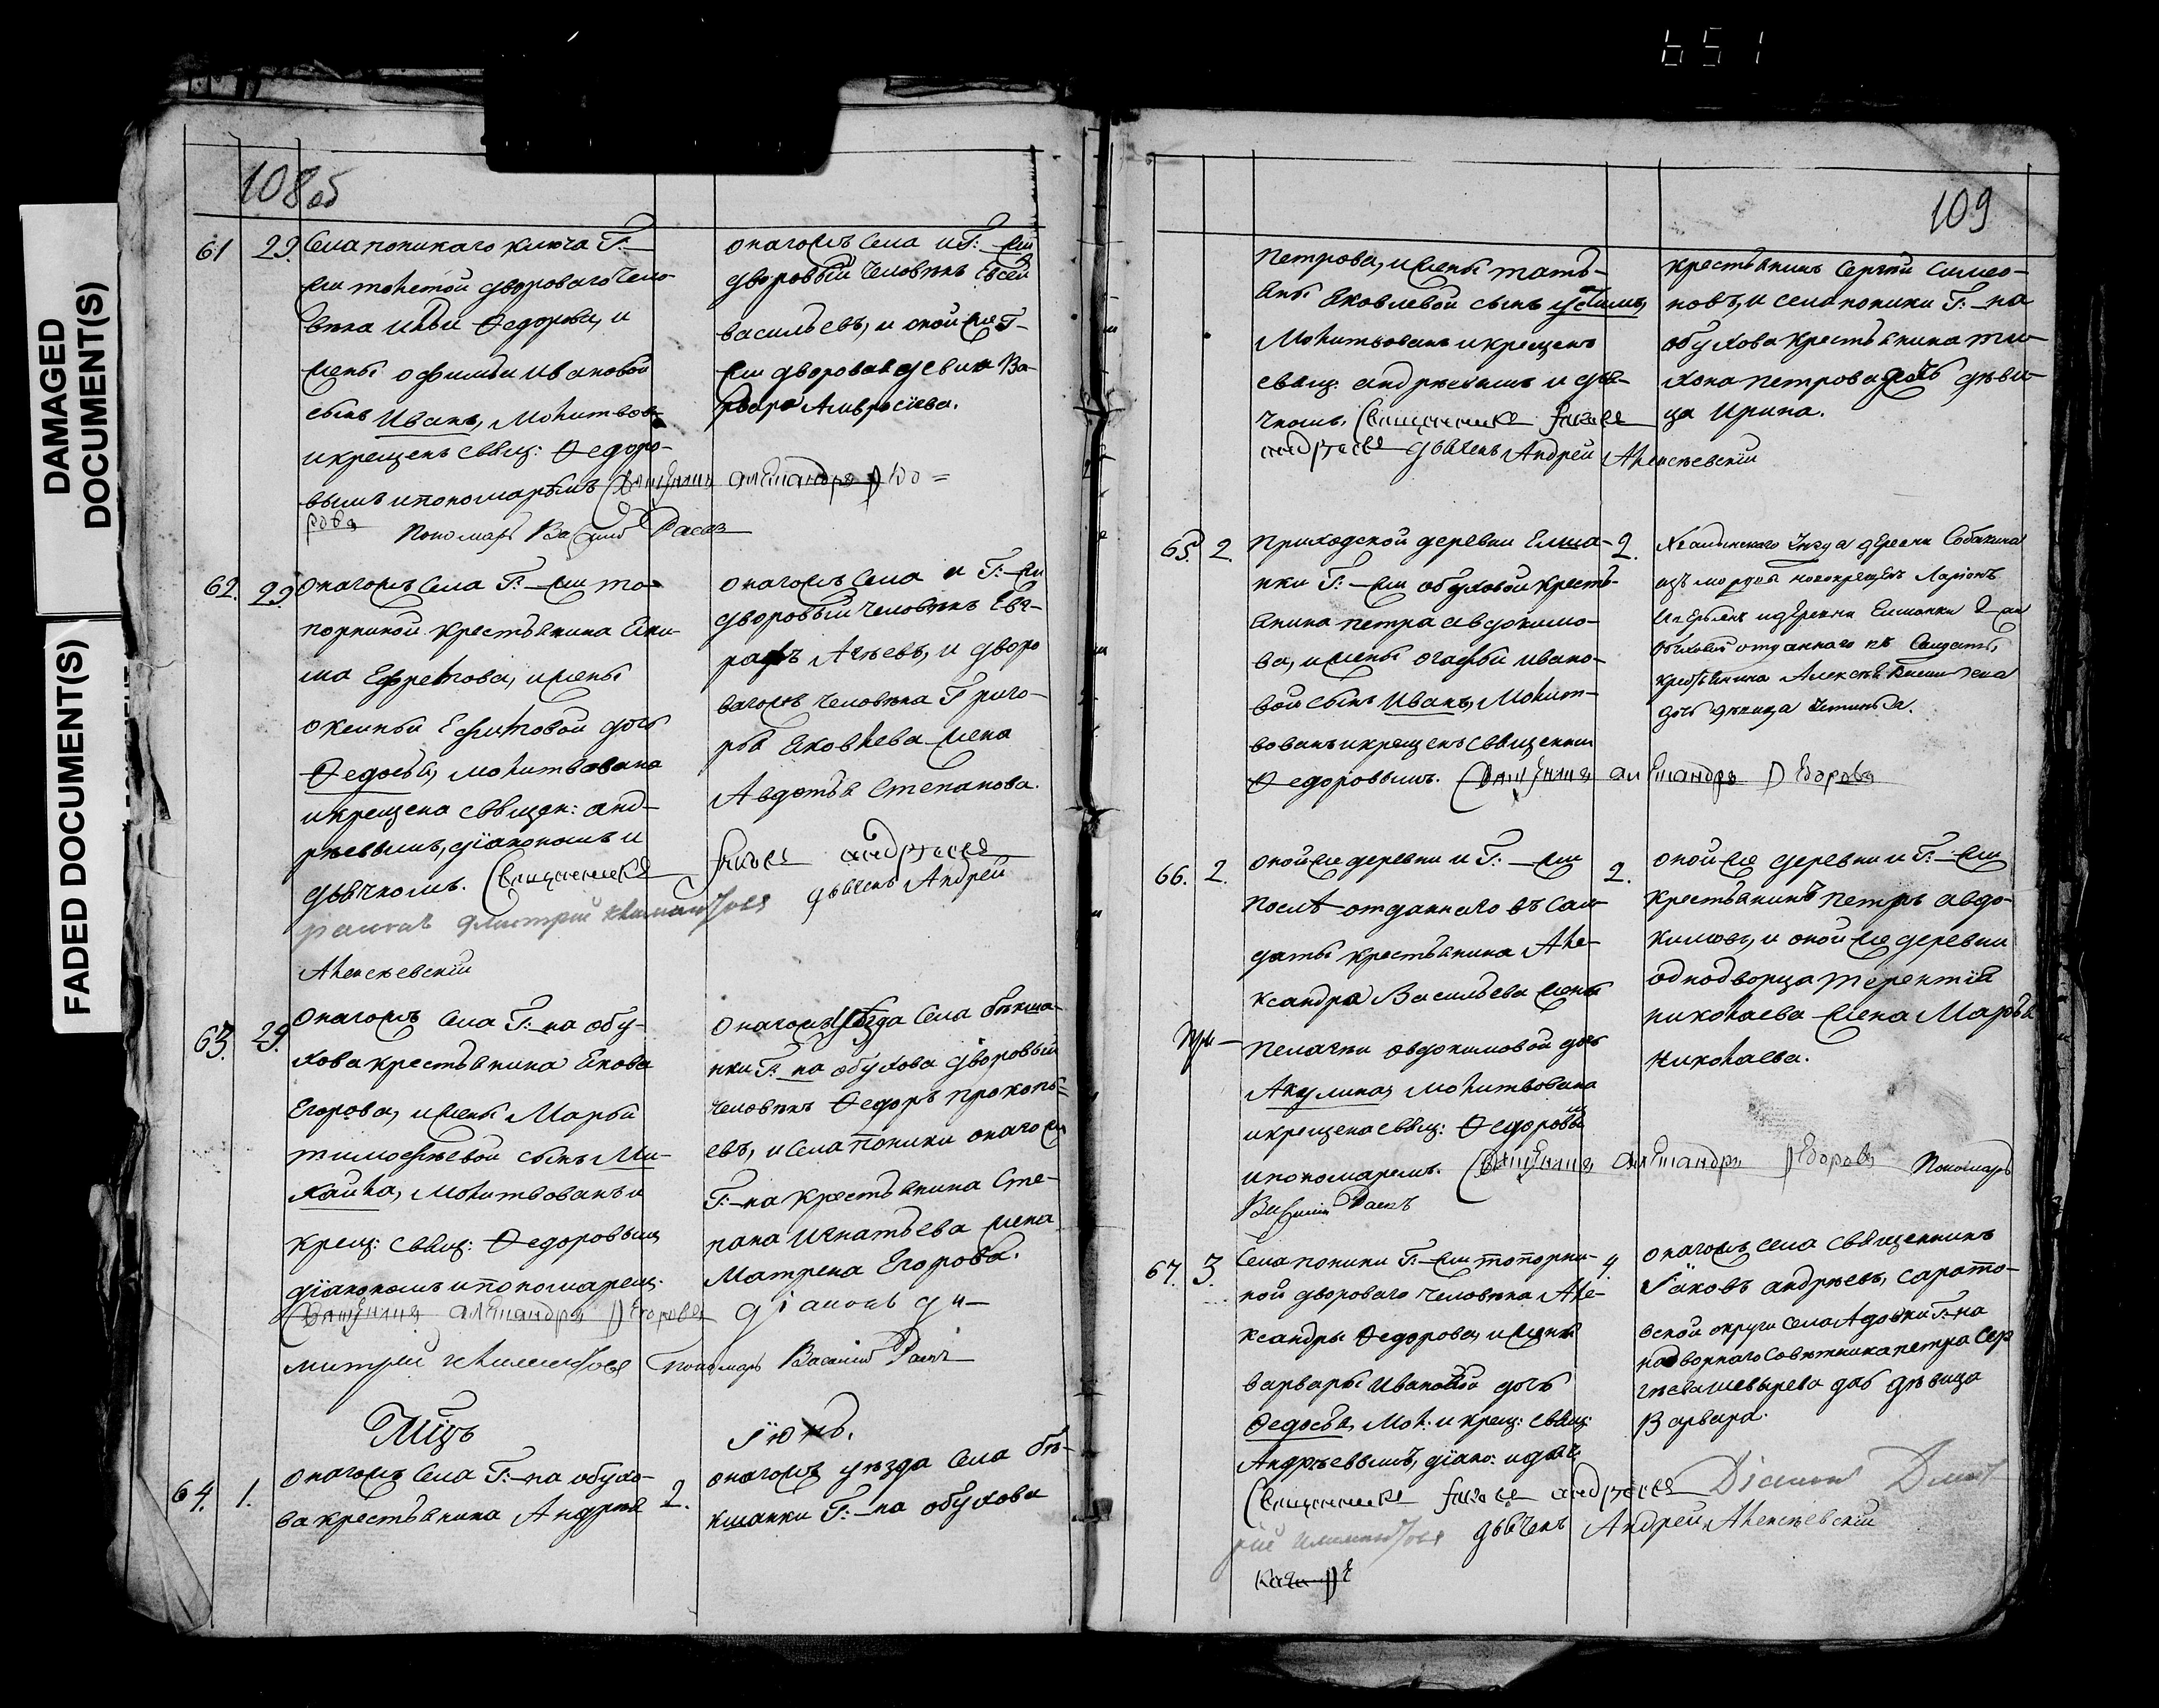 651
DAMAGED
DOCUMENT(S)
FADED DOCUMENT(S)
108 об
61 29. Села поникаго ключа Г:–
жи толстой двороваго чело
века ильи Ѳедорова, и
жены офимьи ивановой
сынъ Иванъ, молитвов.
и крещенъ свящ: Ѳедоро-
вымъ и пономарѣмъ Священникъ александръ Ѳедо=
ровъ Пономарь Василий
онагожъ села и Г:–жи
дворовый человекъ Евсей
васильевъ, и онойже Г–
жи дворовая девка Ва-
рвара Амвросиева.
62. 29. онагожъ села Г:–жи то-
порниной крестьянина Еки-
ма Ефремова, и жены
оксиньи Ефимовой дочь
Ѳедосья, молитвована
и крещена священ: анд-
рѣевымъ, діакономъ и
дьячкомъ. Священникъ Іаковъ андреевъ
Дмитрий дьячекъ Андрей
Алексѣевскій
онагожъ села и Г:–жи
дворовый человекъ Евг-
рафъ Агѣевъ, и дворо
вагожъ человека Григо-
рья Яковлева жена
Авдотья Степанова.
63. 29. Онагожъ села Г:–на обу-
хова крестьянина Якова
Егорова, и жены Марьи
тимофѣевой сынъ Ми-
хаила, молитвованъ и
крещ: свящ: Ѳедоровым
діакономъ и пономарем.
Священникъ александръ Ѳедоровъ діаконъ ди–
митрий пономарь Василий
Онагожъ уѣзда села бекша-
нки Г:–на обухова дворовый
человекъ Ѳедоръ прокопь-
евъ, и села поники онагожъ
Г:–на крестьянина Сте-
пана Игнатьева жена
Матрена Егорова.
Мцъ Іюнь.
64. 1. онагожъ села Г:–на обухо-
ва крестьянина Андрея
2. онагожъ уѣзда села бе-
кшанки Г:–на обухова
109
Петрова, и жены тать-
яны Яковлевой сынъ
Молитвованъ и крещенъ
свящ. андрѣевымъ и дья-
чкомъ. Священникъ Іаковъ
андреевъ дьячекъ Андрей Алексѣевскій
крестьянинъ Сергѣй симео-
новъ, и села поники Г:–на
обухова крестьянина ти-
хона петрова дочь дѣви-
ца Ирина.
65. 2. приходской деревни Елша-
нки Г:–жи обуховой кресть-
янина петра авдокимо-
ва, и жены огафьи ивано-
вой сынъ Иванъ, Молит-
вованъ и крещенъ священник
Ѳедоровымъ. Священникъ александръ Ѳедоровъ
2. уезда деревни Собакина
изъ мордвы новокрещенъ Ларіонъ
и деревни Елшанки
отданнаго въ Солдаты
крестьянина Алексѣя
дочь дѣвица Устинья.
66. 2. онойже деревни и Г:–жи
послѣ отданнаго въ сол-
даты крестьянина Але-
ксандра Васильева жены
пелагеи овдокимовой дочь
Акулина, молитвована
и крещена свящ: Ѳедоровым
и пономаремъ. Священникъ александръ Ѳедоровъ Пономарь
Василий
2. онойже деревни и Г:–жи
крестьянинъ петръ авдо-
кимовъ, и онойже деревни
однодворца терентія
николаева жена Марья
Николаева.
67. 3. Села поники Г:–жи топорни-
ной двороваго человека Але-
ксандры Ѳедорова, и жены
варвары Ивановой дочь
Ѳедосья, Мол: и крещ: свящ:
Андрѣевымъ, діако: и дьяч
Священникъ Іаковъ андреевъ Діаконъ Дмит
рий дьячекъ Андрей Алексѣевскій
4. онагожъ села священникъ
Іаковъ андрѣевъ, сарато-
вской округи села Адоевки Г:–на
надворнаго совѣтника петра Сер
гѣева шевырева дочь дѣвица
Варвара.